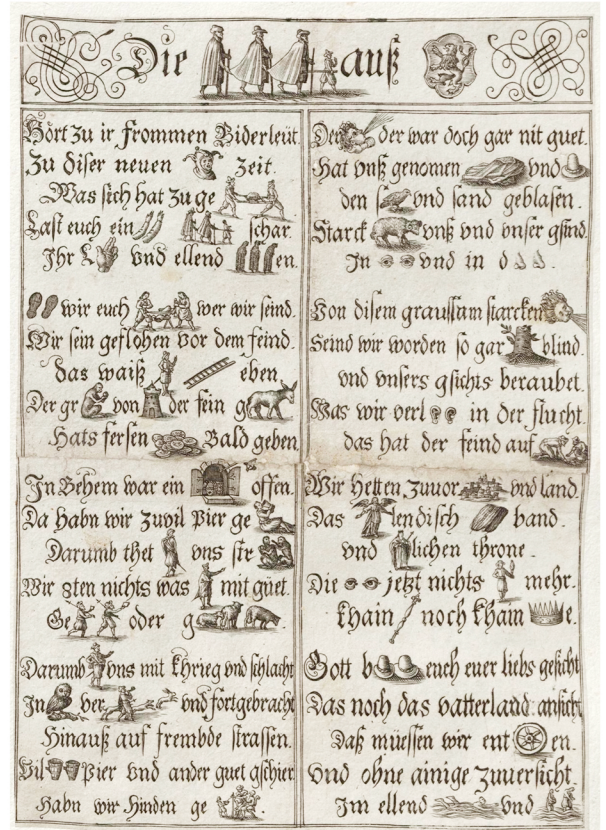 Die auß
Hört zu ir frommen Biderleüt
Zu diser neuen Zeit.
Was sich hat zu ge
Last euch ein schar.
Ihr L und ellend en.
wir euch wer wir seind.
Wir sein geflohen vor dem feind.
das waiß eben
Der gr von der fein g
Hats fersen Bald geben
In Behem war ein offen.
Da habn wir zuvil Pier ge
Darumb thet vns str
Wir zten nichts was mit güet.
Ge oder g
Darumb vns mit khrieg vnd schlacht
In ver vnd fortgebracht
Hinauß auf frembde strassen.
Vil Pier vnd ander guet gschier
Habn wir hinden ge
Der der war doch gar nit guet.
Hat vnß genomen vnd
den s vnd sand geblasen.
Starck vnß vnd vnser gsind.
In vnd in o
Von disem graussam starcken
Seind wir worden so gar blind.
vnd vnsers gsichts beraubet.
Was wir verl in der flucht.
das hat der feind auf
Wir hetten zuuor vnd land.
Das lendisch band.
vnd lichen throne.
Die jetzt nichts mehr.
khain noch khain e.
Gott b euch euer liebs gesicht
Das noch das vatterland ansicht
Daß müessen wir ent en.
Vnd ohne ainige zuuersicht.
Im ellend vnd